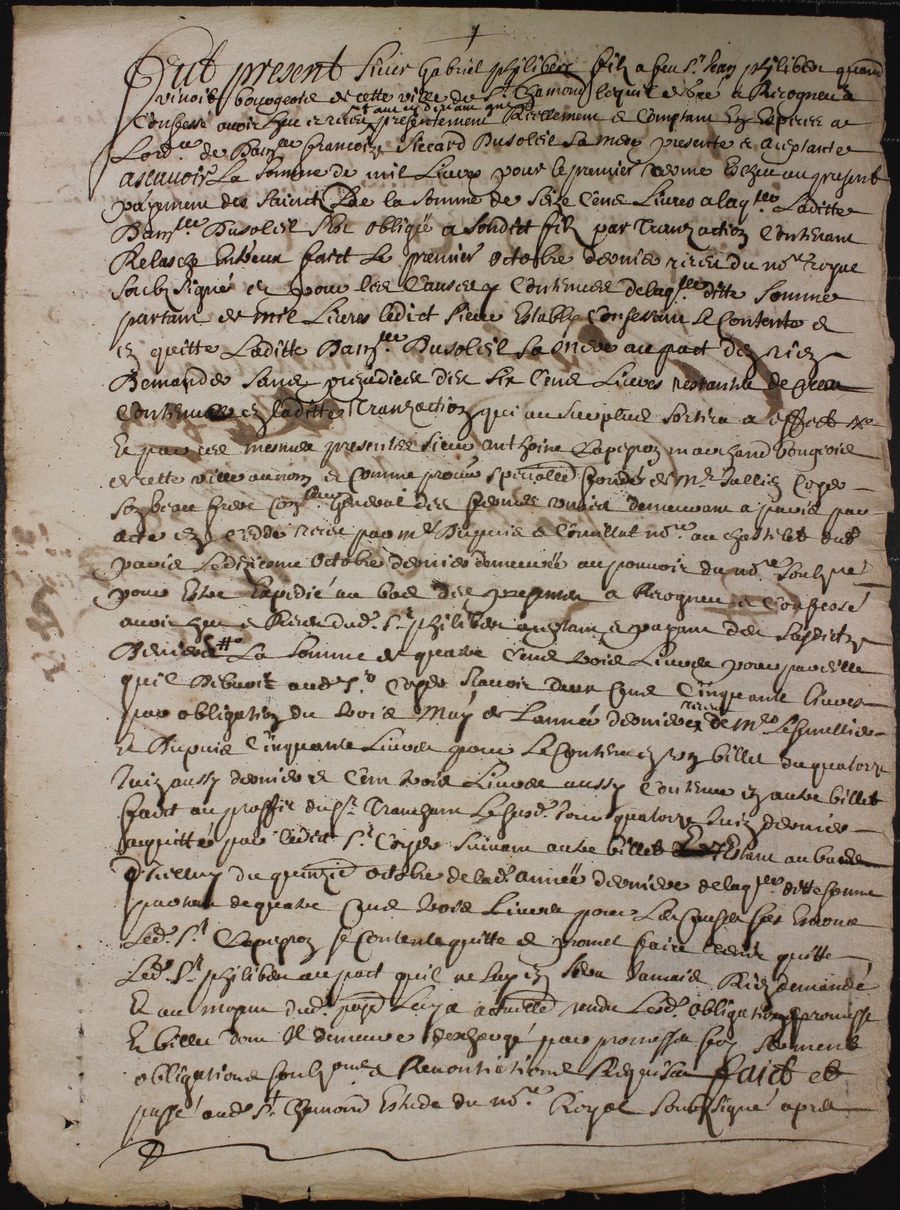 Fut present Sieur Gabriel philibert filz a feu Sr. Jean philibert quand
vivoit bourgeois de cette ville de St. Chamond lequel de gre a Recogneu &
Confessé avoir heu et receu presentement Reellement & Comptant En Especes de
de Damlle francoise Siccard Dusoleil Sa mere presente & acceptante
ascavoir La Somme de mil Livres pour le premier terme Escheu au present
payement des Saincts de la Somme de Seize Cens Livres a laqlle Laditte
Damlle Dusoleil Sest obligée a Sondict filz par Tranzaction Contenant
Relasche Entreux faict Le premier octobre dernier receu du nore Royal
Soubzsigné et pour les Causes y Contenues de laqlle ditte Somme
partant de mil Livres ledict Sieur Estably Confessant Se Contente &
en quitte Laditte Damlle Dusoleil Sa mere au pact den rien
Demander Sans prejudice des Six Cens Livres restantes de Celles
Contenues en laditte Tranzaction qui au Surplus Sortira a effect
Et par ces mesmes presentes Sieur anthoine Laperoz marchand bourgeois
de cette ville au nom & Comme procur Special & fondé de Mr Jullien Coyer
Son beau frere General des fermes demeurant a paris par
acte receu par Mes Dupuis & nores au chastelet dud
paris Le dixieme octobre dernier demeuré au pouvoir du nore Soubzné
pour Estre Expedié au bas des presentes a Recogneu & Confessé
avoir heu & Receu dud. Sr. philibert acceptant & payant des Susdicts
Deniers # La Somme de quatre Cens trois Livres pour pareille
quil Debvoit aud. Sr. Coyer Scavoir deux Cens Cinquante livres
par obligation du trois May de Lannée derniere receu de Me
& Dupuis Cinquante Livres pour Le Contenu en billet du quatorze
Juin aussy dernier et Cent trois Livres aussy Contenu en autre billet
faict au proffit du Sr. Tranchant Lesusd. Jour quatorze Juin dernier
acquitté par ledict Sr. Coyer Suivant autre billet Estant au bas
Dicelluy du quinzie octobre de lad. année derniere de laqlle ditte Somme
partant de quatre Cens trois Livres pour Les Causes Sus Enonce
Led. Sr. Laperoz Se Contente quitte & promet faire tenir quitte
Led. Sr. philibert au pact quil ne luy en Sera Jamais Rien demandé
Et au moyen dud. payt Luy a actuellt rendu Lesd. obligation promesse
Et billet dont Il demeure deschargé par promesse foy Serment
obligations Soubzmes & Renontiations Requises faict et
passé aud. St. Chamond Estude du nore Royal Soubzsigné apres